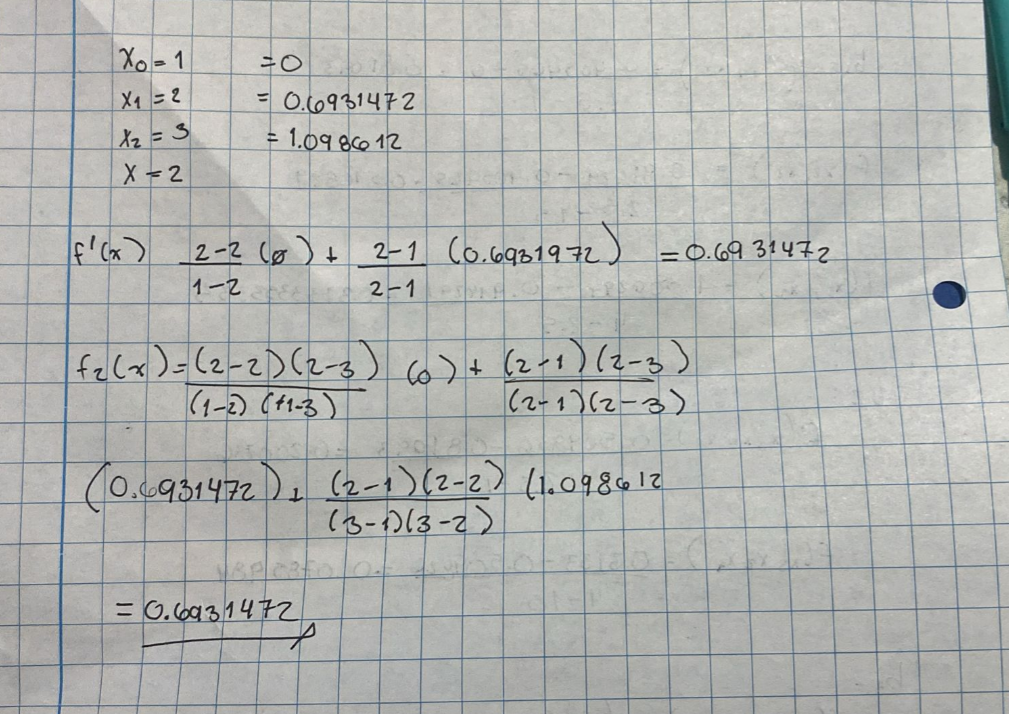 x₀ = 1 = 0
x₁ = 2 = 0.6931472
x₂ = 3 = 1.098612
x = 2
f'(x) (2-2)/(1-2) (0) + (2-1)/(2-1) (0.6931972) = 0.6931472
f₂(x) = (2-2)(2-3)/(1-2)(+1-3) (0) + (2-1)(2-3)/(2-1)(2-3)
(0.6931472) + (2-1)(2-2)/(3-1)(3-2) (1.098612
= 0.6931472